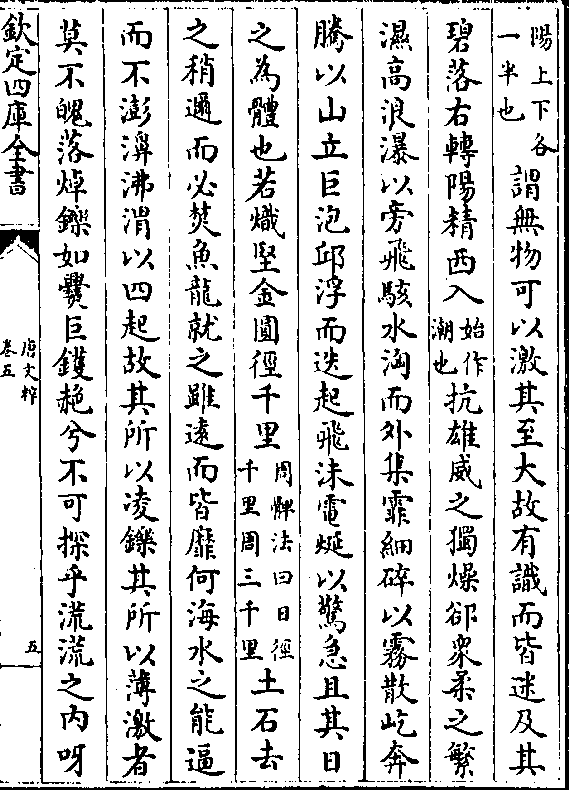 陽上下各
一半也
謂無物可以激其至大故有識而皆迷及其
碧落右轉陽精西入始作潮也抗雄威之獨燥卻衆柔之繁
濕高浪瀑以旁飛駭水洶而外集霏細碎以霧散屹奔
騰以山立巨泡邱浮而迭起飛沫電烻以驚急且其日
之為體也若熾堅金圓徑千里周髀法曰日徑千里周三千里土石去
之稍邇而必焚魚龍就之雖遠而皆靡何海水之能逼
而不澎濞沸渭以四起故其所以凌鑠其所以薄激者
莫不魄落焯鑠如爨巨鑊赩兮不可探乎流流之内呀
欽定四庫全書
唐文粹
卷五
五